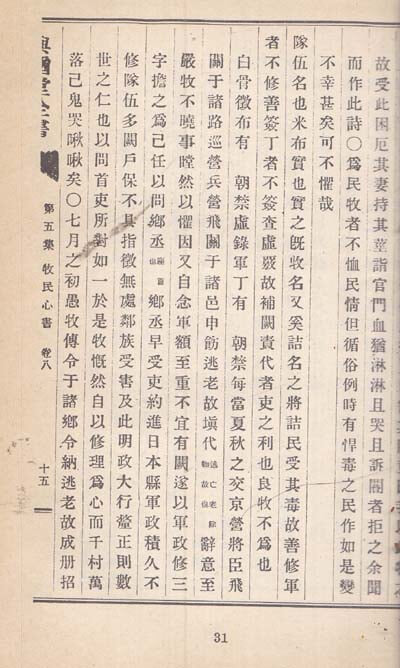 故受此困厄其妻持其莖詣官門血猶淋淋且哭且訴閽者拒之余聞
而作此詩〇爲民牧者不恤民情但循俗例時有悍毒之民作如是變
不幸甚矣可不懼哉
隊伍名也米布實也實之旣收名又奚詰名之將詰民受其毒故善修軍
者不修善簽丁者不簽査虛覈故補闕責代者吏之利也良牧不爲也
白骨徵布有 朝禁虛錄軍丁有 朝禁每當夏秋之交京營將臣飛
關于諸路巡營兵營飛關于諸邑申飭逃老故塡代逃亡老除物故也辭意至
嚴牧不曉事瞠然以懼因又自念軍額至重不宜有闕遂以軍政修三
字擔之爲己任以問鄕丞鄕丞早受吏約進曰本縣軍政積久不
修隊伍多闕戶保不具指徵無處鄰族受害及此明政大行釐正則數
世之仁也以問首吏所對如一於是牧慨然自以修理爲心而千村萬
落已鬼哭啾啾矣〇七月之初愚牧傳令于諸鄕令納逃老故成册招
與猶堂全書
第五集 牧民心書 卷八
十五
31